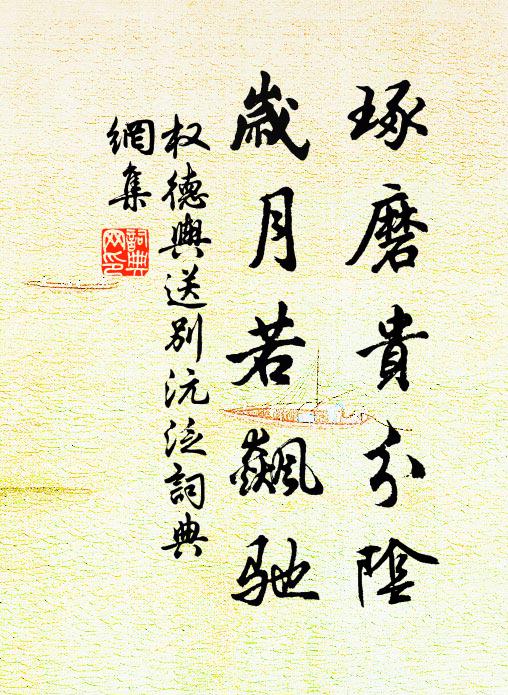 琢磨貴分陰
歲月若飆馳
权德輿送別沅泛詞典
網集
詞典網印